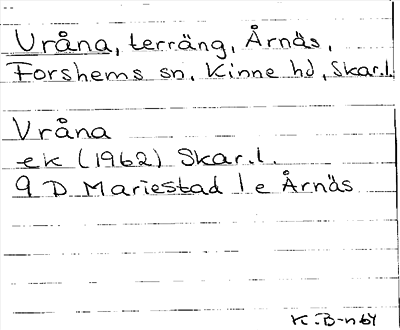 Vråna, terräng, Årnäs,
Forshems sn, Kinne hd, Skar.l.
Vråna
ek (1962) Skar.l.
9 D Mariestad 1 e Årnäs